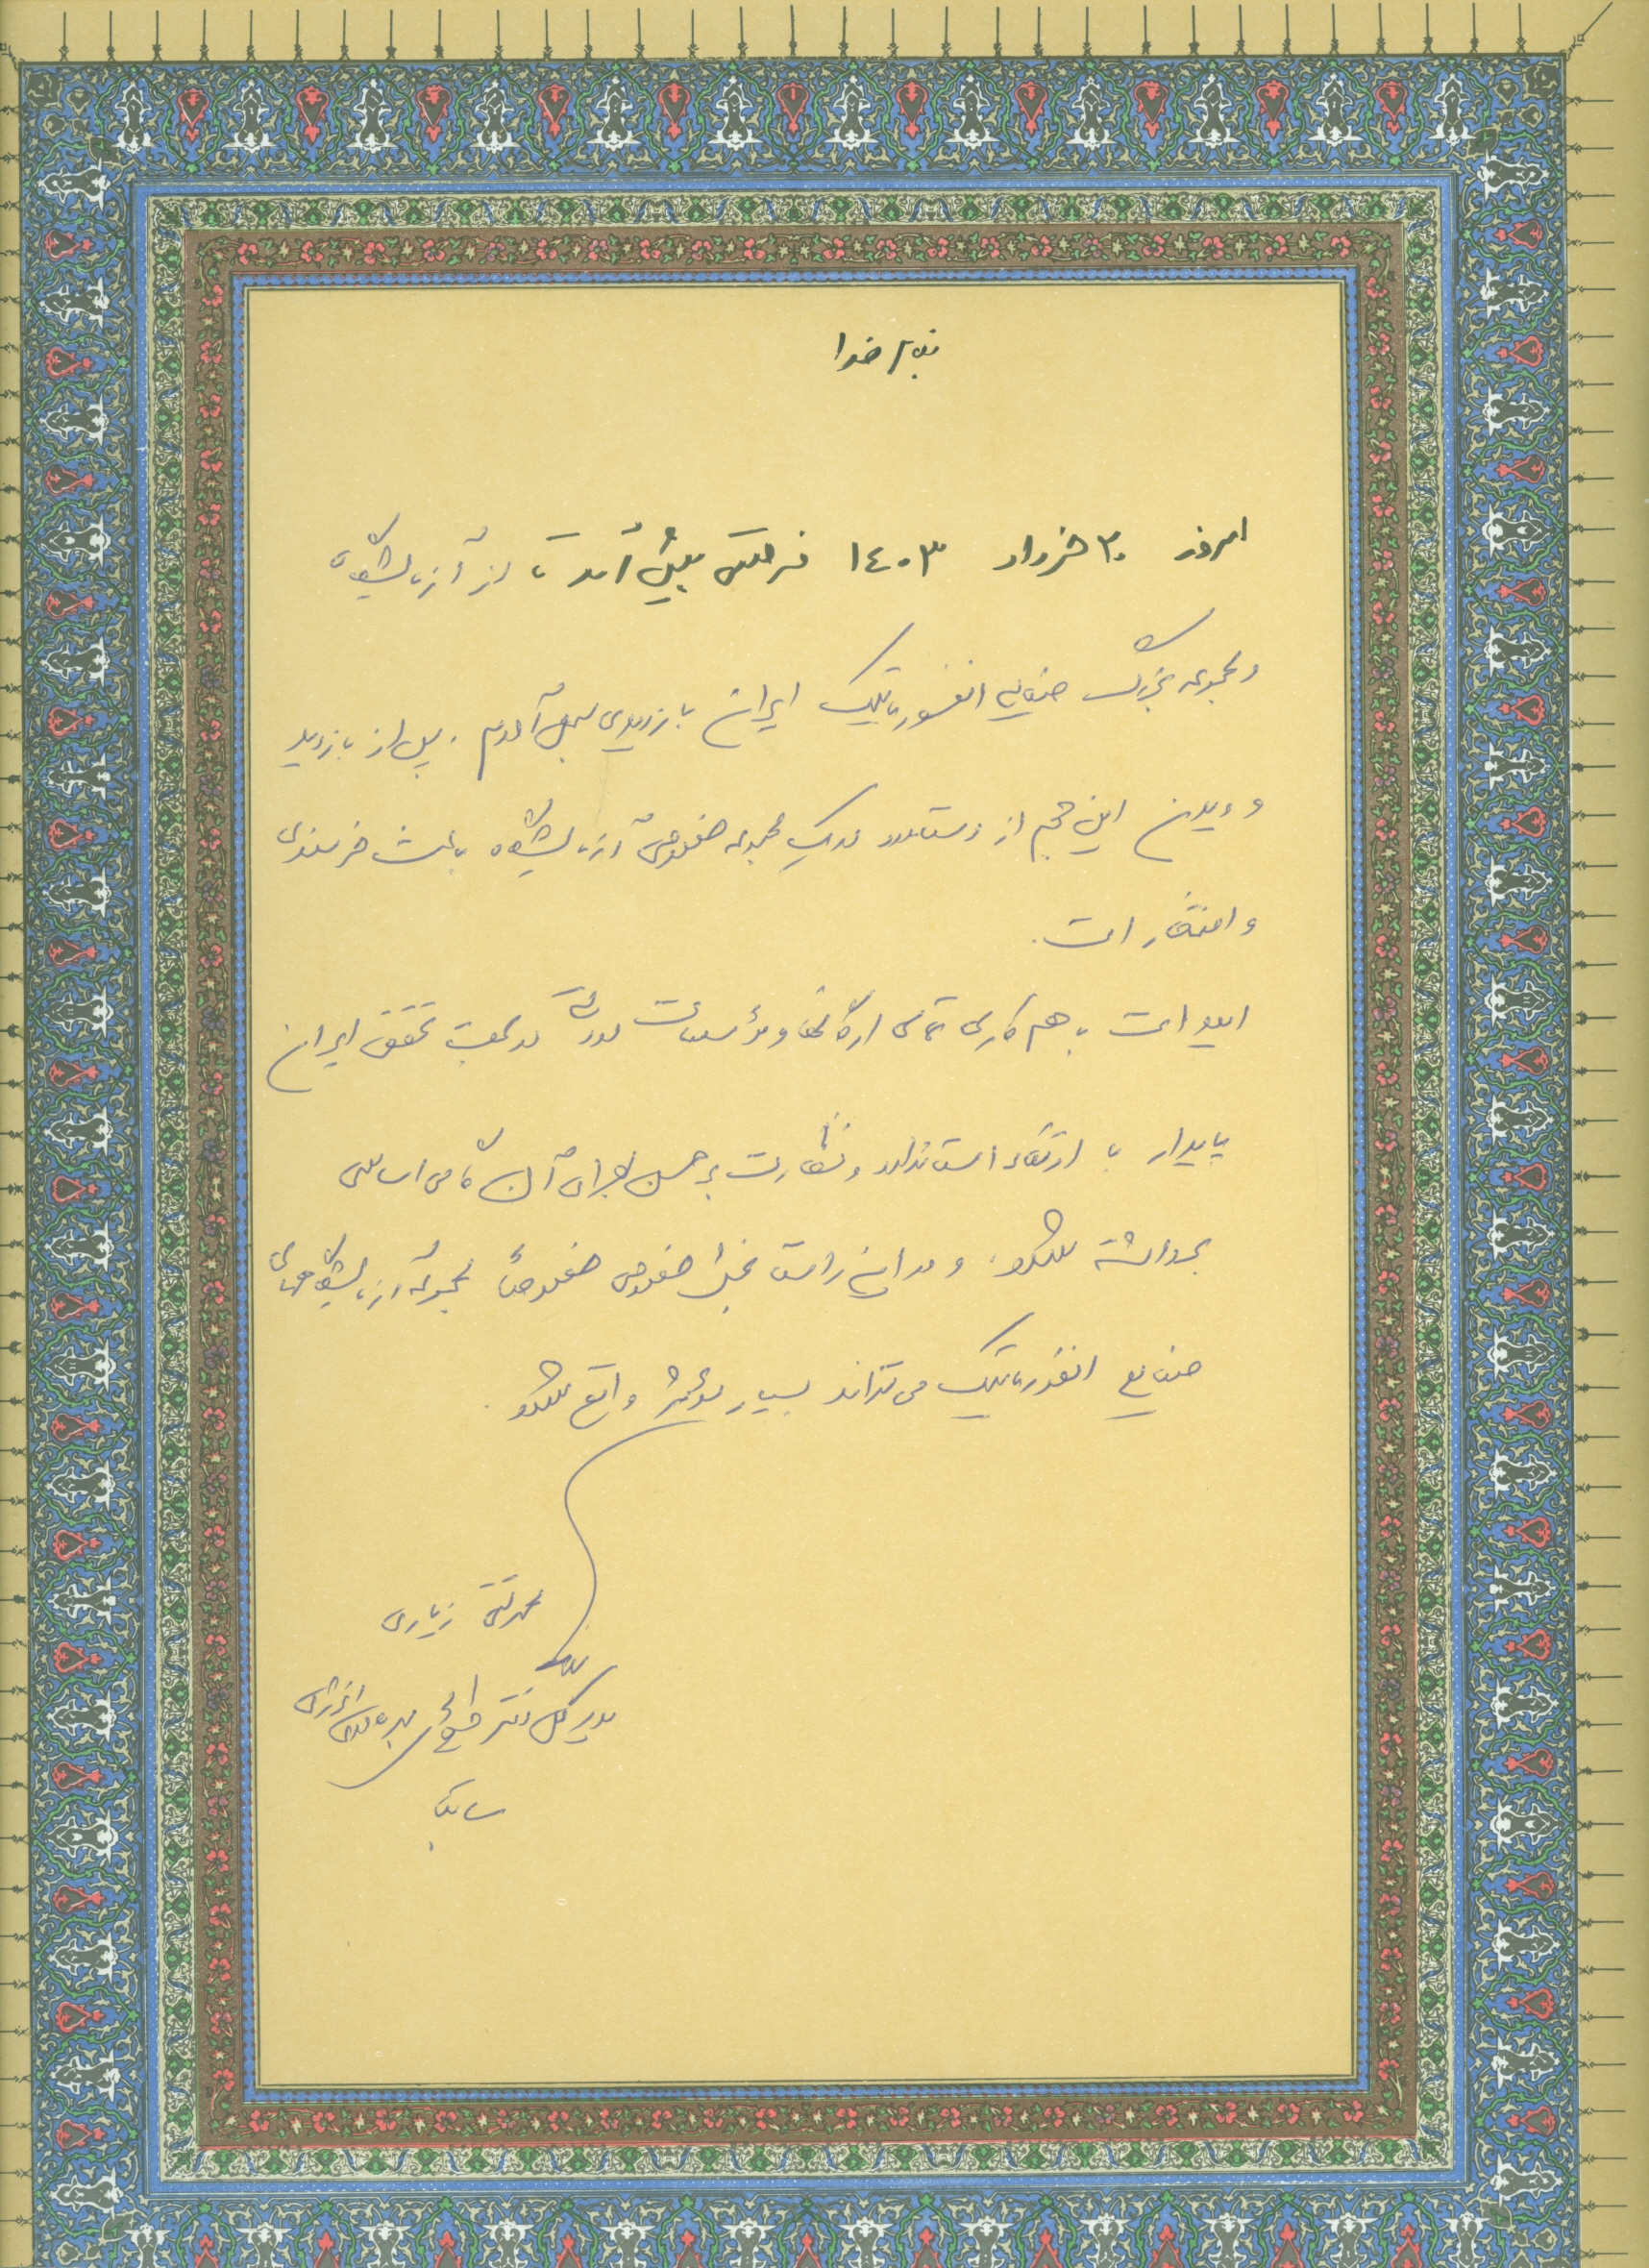 بنام خدا
امروز ۳۰ خرداد ۱٤۰۳ فرصتی پیش آمد تا از آزمایشگاه
و مجموعه بزرگ صنایع انفورماتیک ایران بازدیدی بعمل آوردم . پس از بازدید
و دیدن این حجم از دستاورد در یک مجموعه خصوصی آزمایشگاه باعث خرسندی
و افتخار است .
امید است با هم کاری تمامی ارگانها و مؤسسات دولتی در جهت تحقق ایران
پایدار با ارتقاء استاندارد و نظارت بر حسن اجرای آن گامی اساسی
برداشته شود . و در این راستا بخش خصوصی خصوصاً مجموعه آزمایشگاههای
صنایع انفورماتیک می تواند بسیار مؤثر واقع شود .
محمدتقی زیاری
مدیر کل دفتر
انرژی
ساتبا